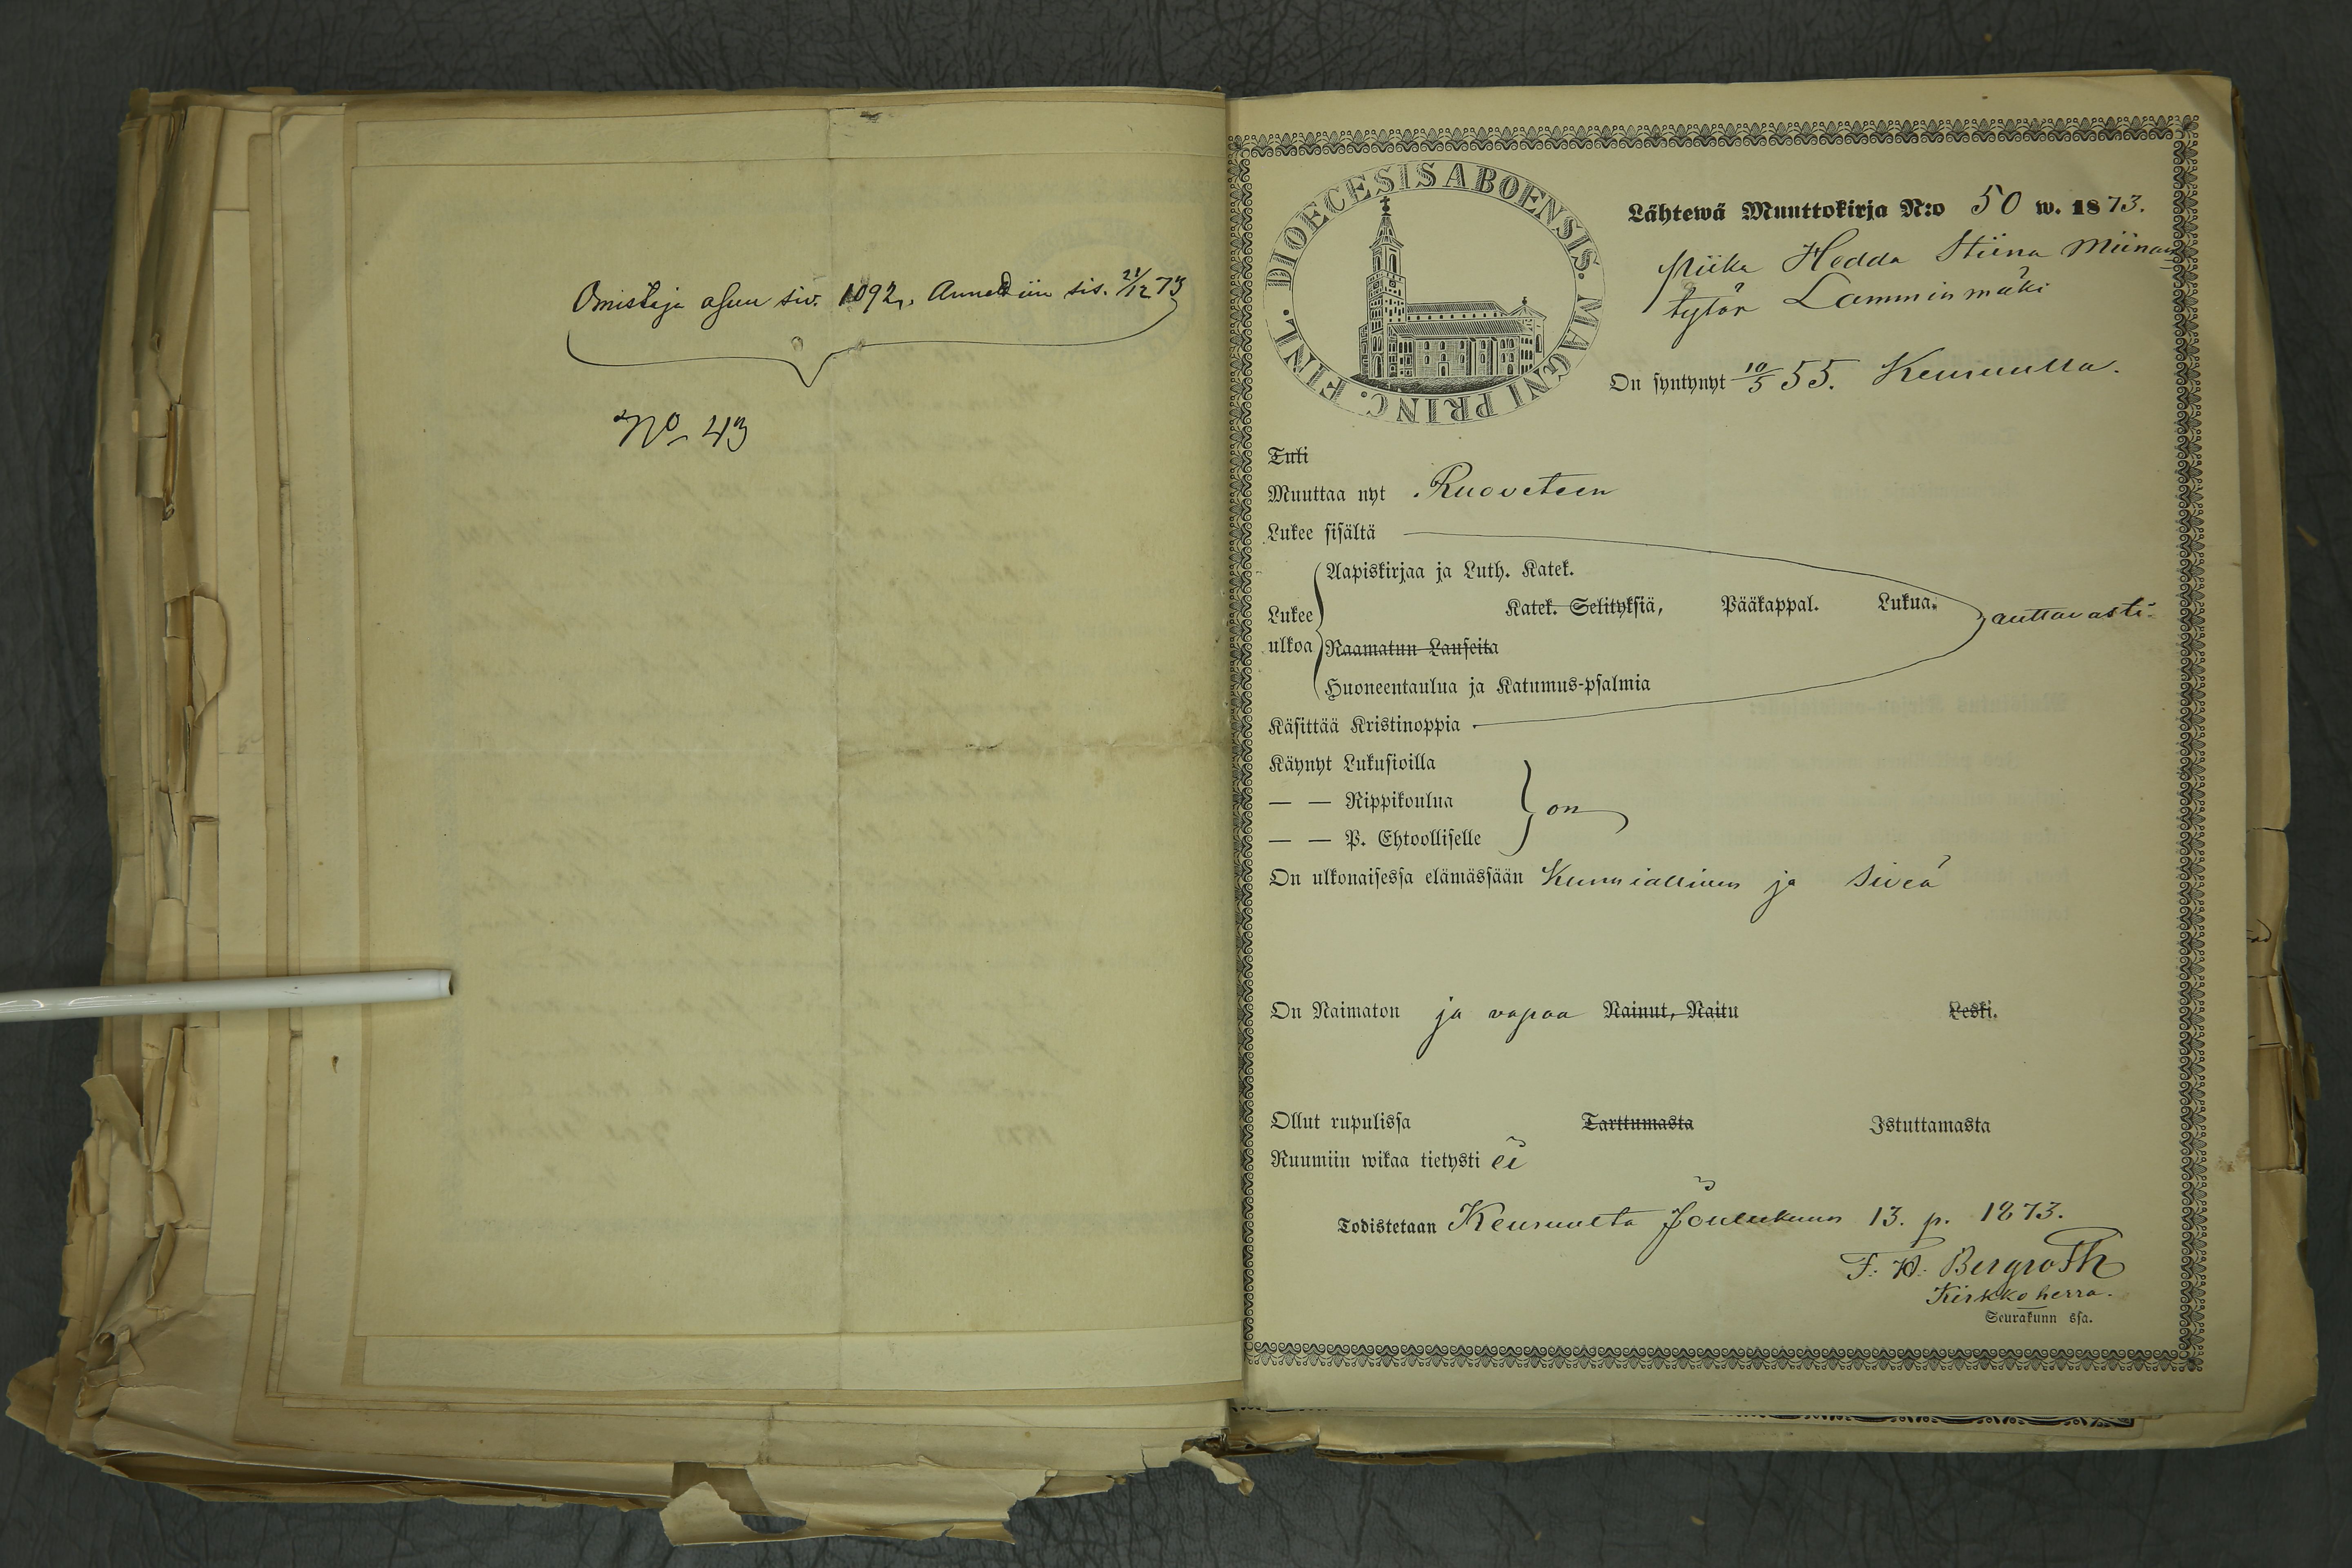 Omistaja asuu siv. 1092,. Annettiin sis. 21/12 73
No 43
DIOECESIS ABOENSIS. MAGNI PRINC. FINL.
Lähtewä Muuttokirja N:o 50 w. 1873.
Piika Hedda Stiina Miinan
tytör Lamminmäki
On syntynyt 10/5 55. Keuruulla.
Tuli
Muuttaa nyt Ruoveteen
Lukee sisältä
Aapiskirjaa ja Luth. Katek.
Lukee ulkoa
Katek. Selityksiä, Pääkappal. Lukua. auttavasti.
Raamatun Lauseita
Huoneentaulua ja Katumus-psalmia
Käsittää Kristinoppia
Käynyt Lukusioilla
— — Rippikoulua on
— — P. Ehtoolliselle
On ulkonaisessa elämässään Kunniallinen ja siveä
On Naimaton ja vapaa Nainut, Naitu Leski.
Ollut rupulissa Tarttumasta Istuttamasta
Ruumiin wikaa tietysti ei
Todistetaan Keuruulta Joulukuun 13. p. 1873.
F. W. Bergroth
Kirkkoherra.
Seurakunn ssa.